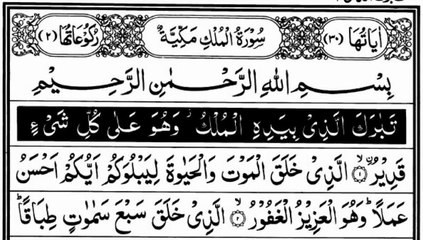 اٰیَاتُهَا (٣٠) سُوۡرَةُ الۡمُلۡكِ مَكِّيَّةٌ (٢) رُكُوۡعَاتُهَا
بِسۡمِ اللهِ الرَّحۡمٰنِ الرَّحِيۡمِ
تَبٰرَكَ الَّذِىۡ بِيَدِهِ الۡمُلۡكُ وَهُوَ عَلٰى كُلِّ شَىۡءٍ
قَدِيۡرُ ۙ﴿١﴾ الَّذِىۡ خَلَقَ الۡمَوۡتَ وَالۡحَيٰوةَ لِيَبۡلُوَكُمۡ اَيُّكُمۡ اَحۡسَنُ
عَمَلًا ؕ وَهُوَ الۡعَزِيۡزُ الۡغَفُوۡرُ ۙ﴿٢﴾ الَّذِىۡ خَلَقَ سَبۡعَ سَمٰوٰتٍ طِبَاقًا ؕ